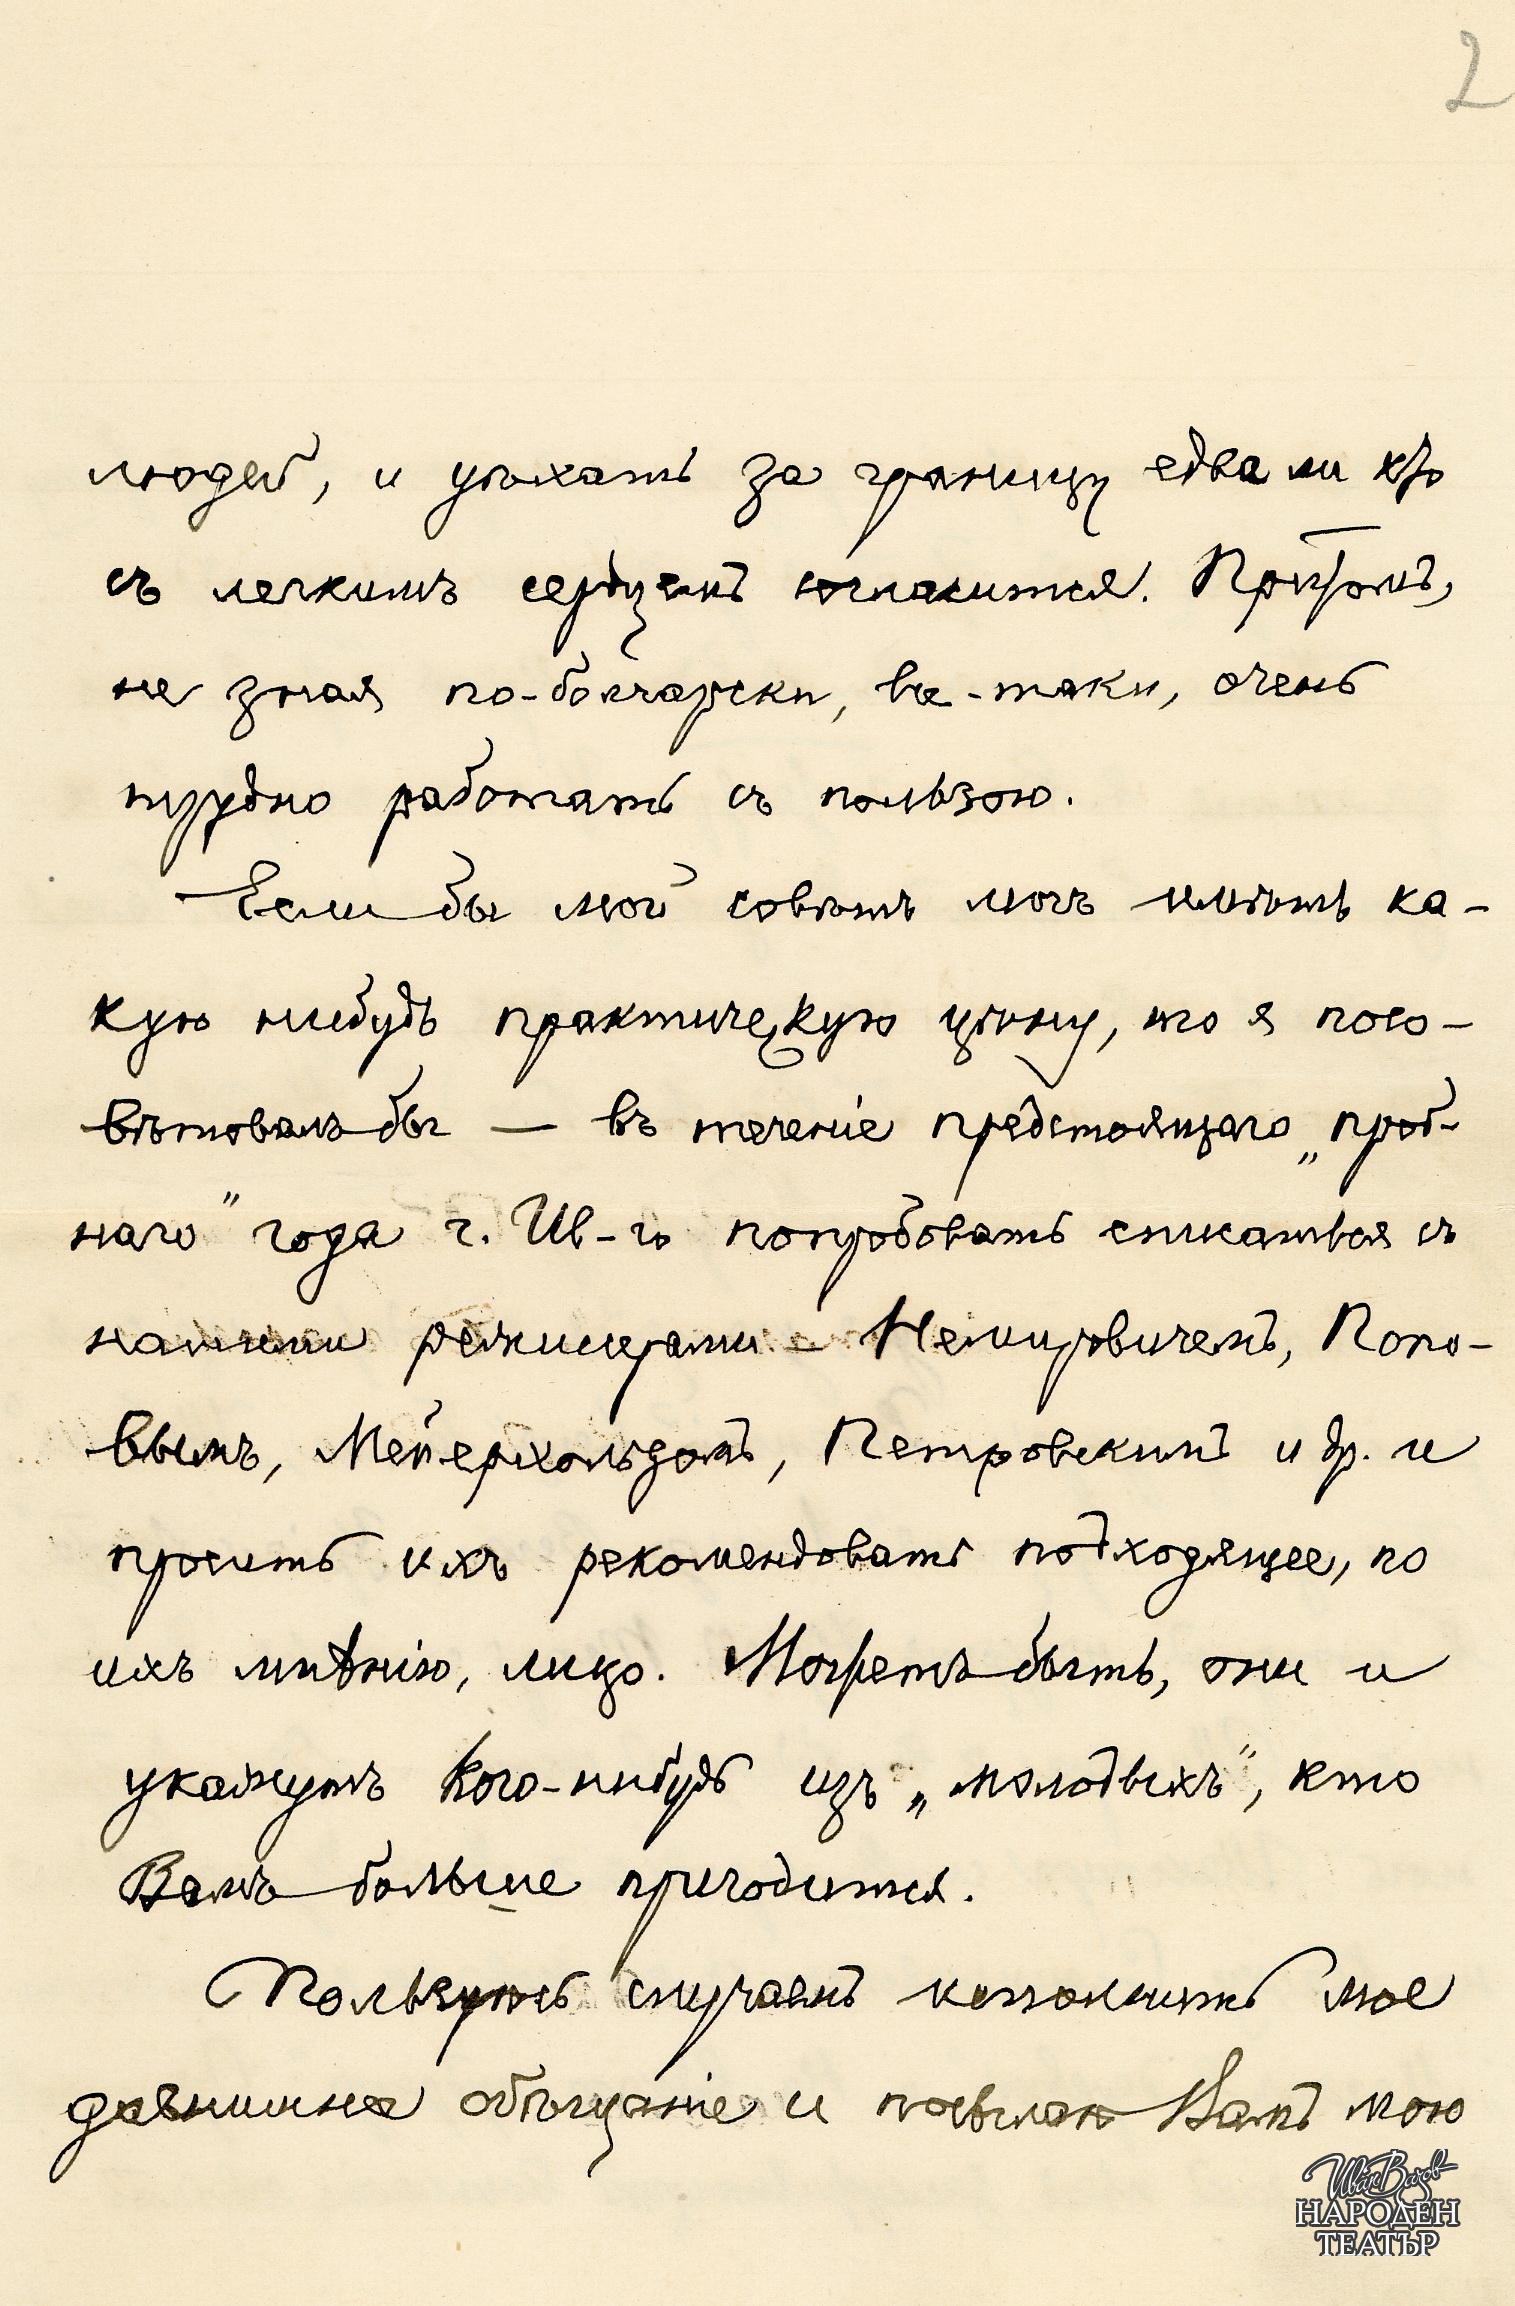 2
людей, и уѣхать за границу едва ли кто
съ легкимъ сердцемъ согласится. Притомъ,
не зная по-болгарски, все-таки, очень
трудно работать съ пользою.
Если бы мой совѣтъ могъ имѣть ка-
кую нибудь практическую цѣну, то я посо-
вѣтовалъ бы — въ теченіе предстоящаго „проб-
наго" года г. Ив-го попробовать списаться съ
нашими режиссерами – Немировичемъ, Попо-
вымъ, Мейерхольдомъ, Петровскимъ и др. и
просить ихъ рекомендовать подходящее, по
ихъ мнѣнію, лицо. Можетъ быть, они и
укажутъ кого-нибудь изъ „молодыхъ", кто
Вамъ больше пригодится.
Пользуюсь случаемъ исполнить мое
давнишнее обѣщаніе и посылаю Вамъ мою
Иван Вазов
НАРОДЕН
ТЕАТЪР